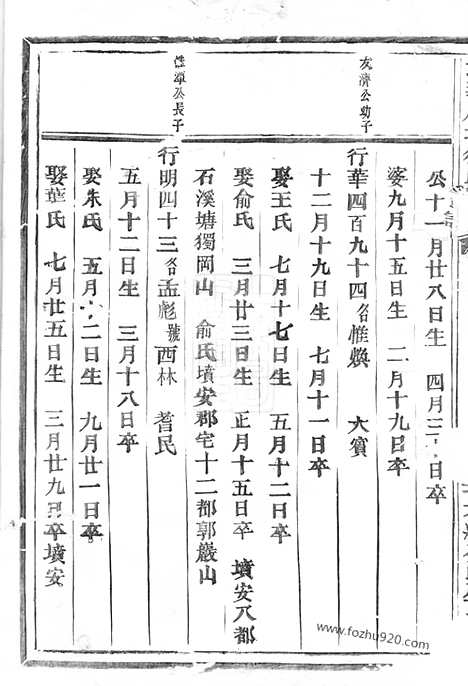 公十一月廿八日生 四月三 日卒
婆九月十五日生 二月十九日卒
友濟公幼子
行華四百九十四名惟煥 大賓
十二月十九日生 七月十一日卒
娶王氏 七月十七日生 五月十二日卒
娶俞氏 三月廿三日生 正月十五日卒 墳安八都
石溪塘獨岡山 俞氏墳安郡宅十二都郭嚴山
公長子
行明四十三名孟彪號西林 耆民
五月十二日生 三月十八日卒
娶朱氏 五月 二日生 九月廿一日卒
娶葉氏 七月廿五日生 三月廿九日卒墳安
www.fozhu920.com